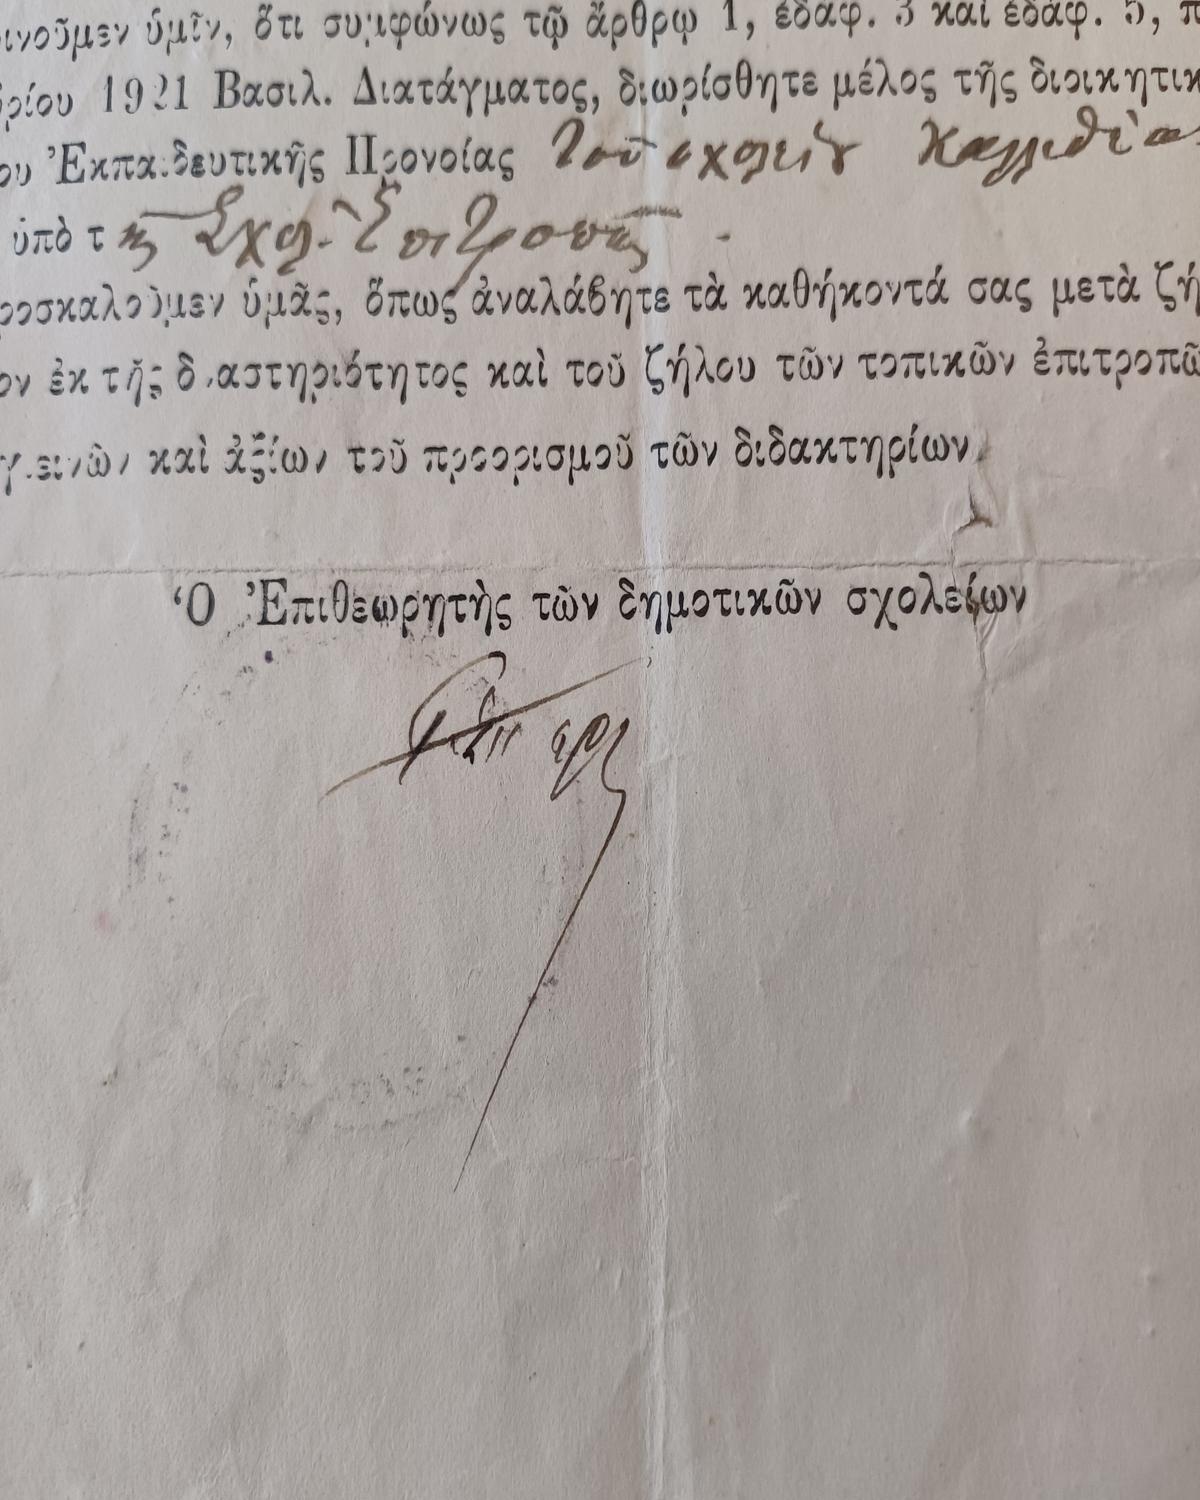 ινοῦμεν ὑμῖν, ὅτι συμφώνως τῷ ἄρθρῳ 1, ἐδάφ. 3 καὶ ἐδάφ. 5, π
βρίου 1921 Βασιλ. Διατάγματος, διωρίσθητε μέλος τῆς διοικητικ
ου Ἐκπαιδευτικῆς Προνοίας τοῦ σχολείου Καλλιθέα
ὑπὸ τῆς Σχολ. Ἐπιτροπῆς
ροσκαλοῦμεν ὑμᾶς, ὅπως ἀναλάβητε τὰ καθήκοντά σας μετὰ ζή
ον ἐκ τῆς δραστηριότητος καὶ τοῦ ζήλου τῶν τοπικῶν ἐπιτροπῶ
γιεινῶν καὶ ἀξίων τοῦ προορισμοῦ τῶν διδακτηρίων.
Ὁ Ἐπιθεωρητὴς τῶν δημοτικῶν σχολείων